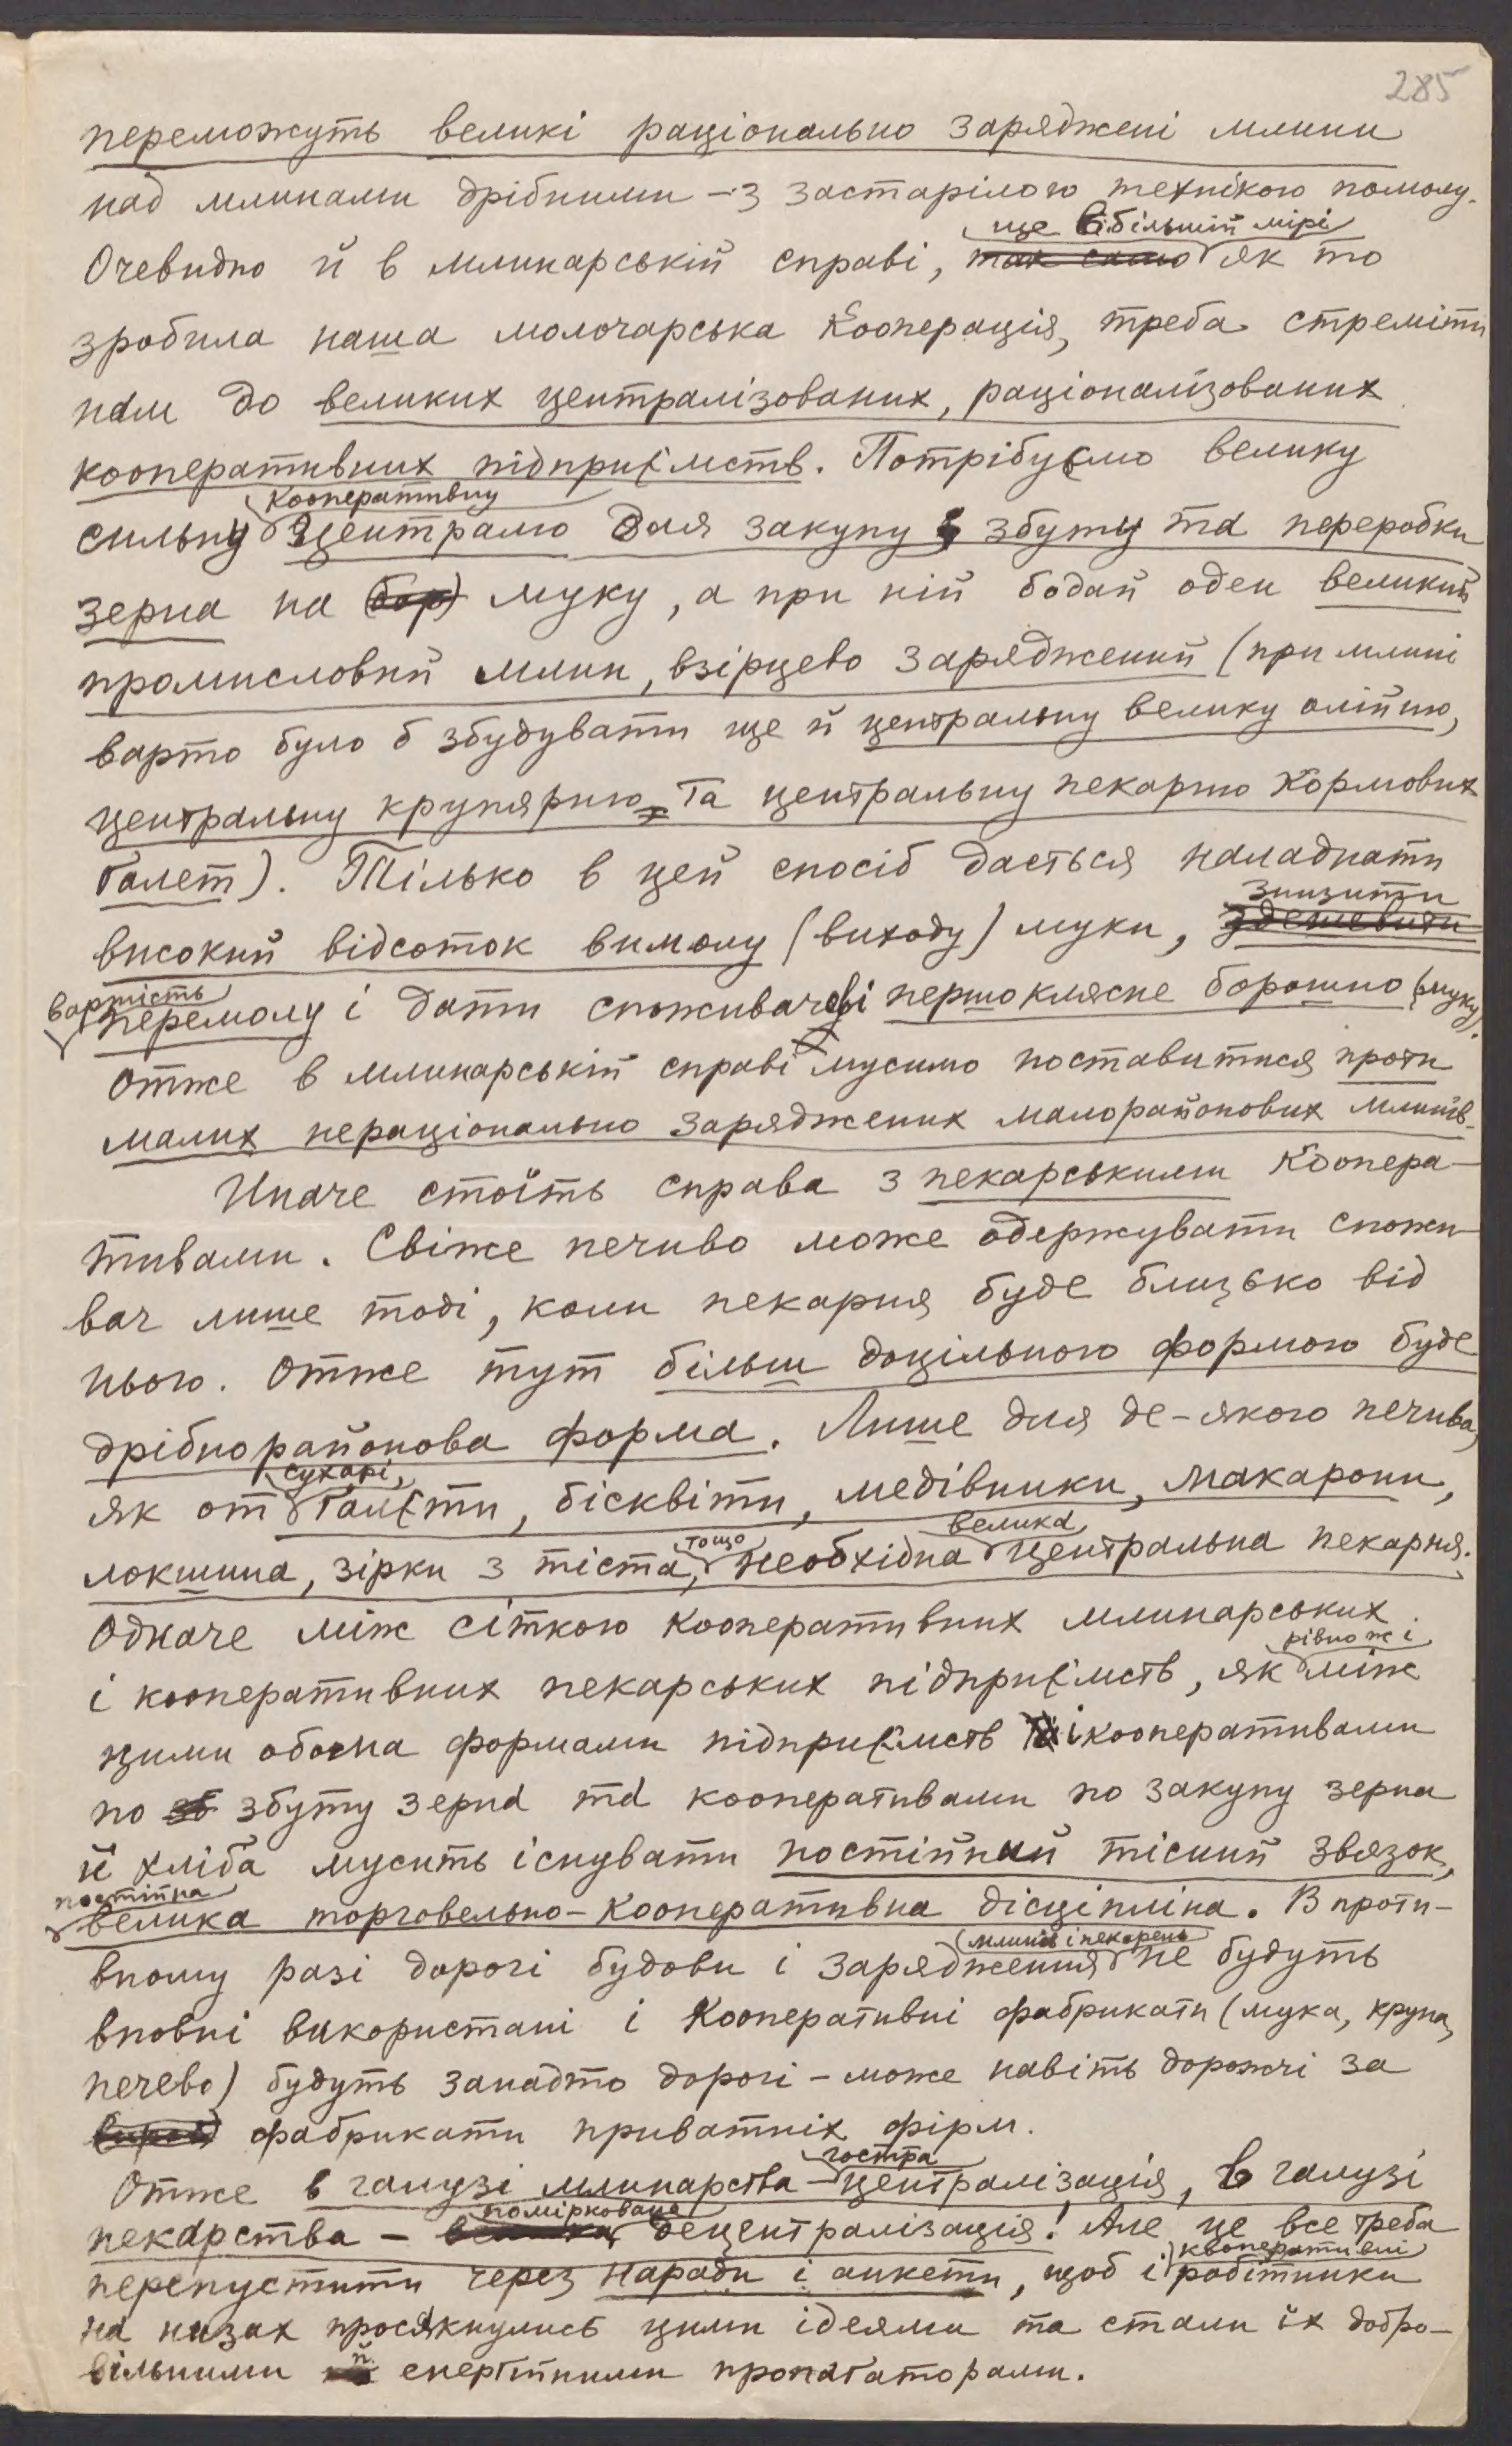 285
переможуть великі раціонально заряджені млини
над млинами дрібними – з застарілою технікою помолу.
ще в більшій мірі
Очевидно й в млинарській справі, так само як то
зробила наша молочарська кооперація, треба стреміти
нам до великих централізованих, раціоналізованих
кооперативних підприємств. Потрібуємо велику
кооперативну
сильну централю для закупу збуту та переробки
зерна на (бор) муку, а при ній бодай оден великий
промисловий млин, взірцево заряджений (при млині
варто було б збудувати ще й центральну велику олійню,
центральну крупярню та центральну пекарню кормових
ґалет). Тілько в цей спосіб дасться наладнати
знизити
високий відсоток вимолу (виходу) муки, здешевити
вартість
перемолу і дати споживачеві першоклясне борошно (муку).
Отже в млинарській справі мусимо поставитися проти
малих нераціонально заряджених малорайонових млинів.
Иначе стоїть справа з пекарськими коопера-
тивами. Свіже печиво може одержувати спожи-
вач лише тоді, коли пекарня буде близько від
нього. Отже тут більш доцільною формою буде
дрібнорайонова форма. Лише для де-якого печива,
сухарі,
як от ґалєти, бісквіти, медівники, макарони,
тощо велика
локшина, зірки з тіста, необхідна центральна пекарня.
Одначе між сіткою кооперативних млинарських
рівно ж і
і кооперативних пекарських підприємств, як між
цими обома формами підприємств і кооперативами
по зб збуту зерна та кооперативами по закупу зерна
й хліба мусить існувати постійний тісний звязок,
постійна
велика торговельно-кооперативна дісціпліна. В проти-
(млинів і пекарень
вному разі дорогі будови і зарядження не будуть
вповні використані і кооперативні фабрикати (мука, крупа,
печево) будуть занадто дорогі – може навіть дорожчі за
фабрикати приватніх фірм.
гостра
Отже в галузі млинарства – централізація, в галузі
поміркована
пекарства – велика децентралізація! Але це все треба
кооперативні
перепустити через наради і анкети, щоб і робітники
на низах просякнулись цими ідеями та стали їх добро-
й
вільними енерґійними пропаґаторами.